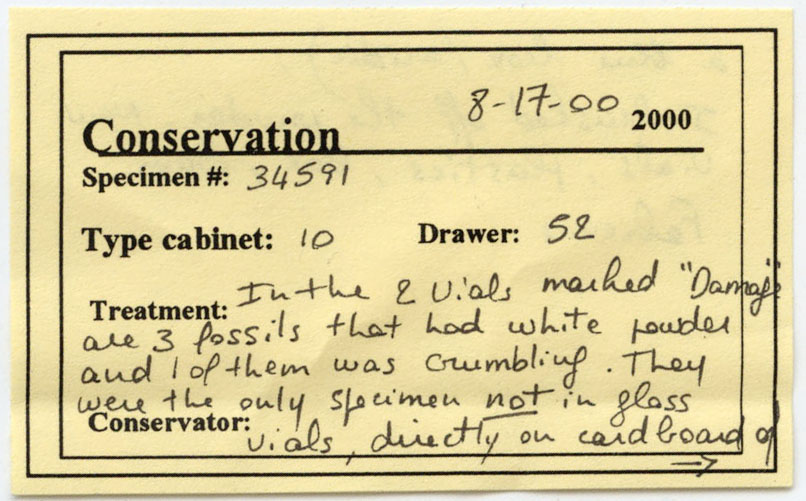 8-17-00 2000
Conservation
Specimen #: 34591
Type cabinet: 10 Drawer: 52
Treatment: In the 2 Vials marked "Damage"
are 3 fossils that had white powder
and 1 of them was crumbling. They
were the only specimen not in glass
Conservator: vials, directly on cardboard of
→